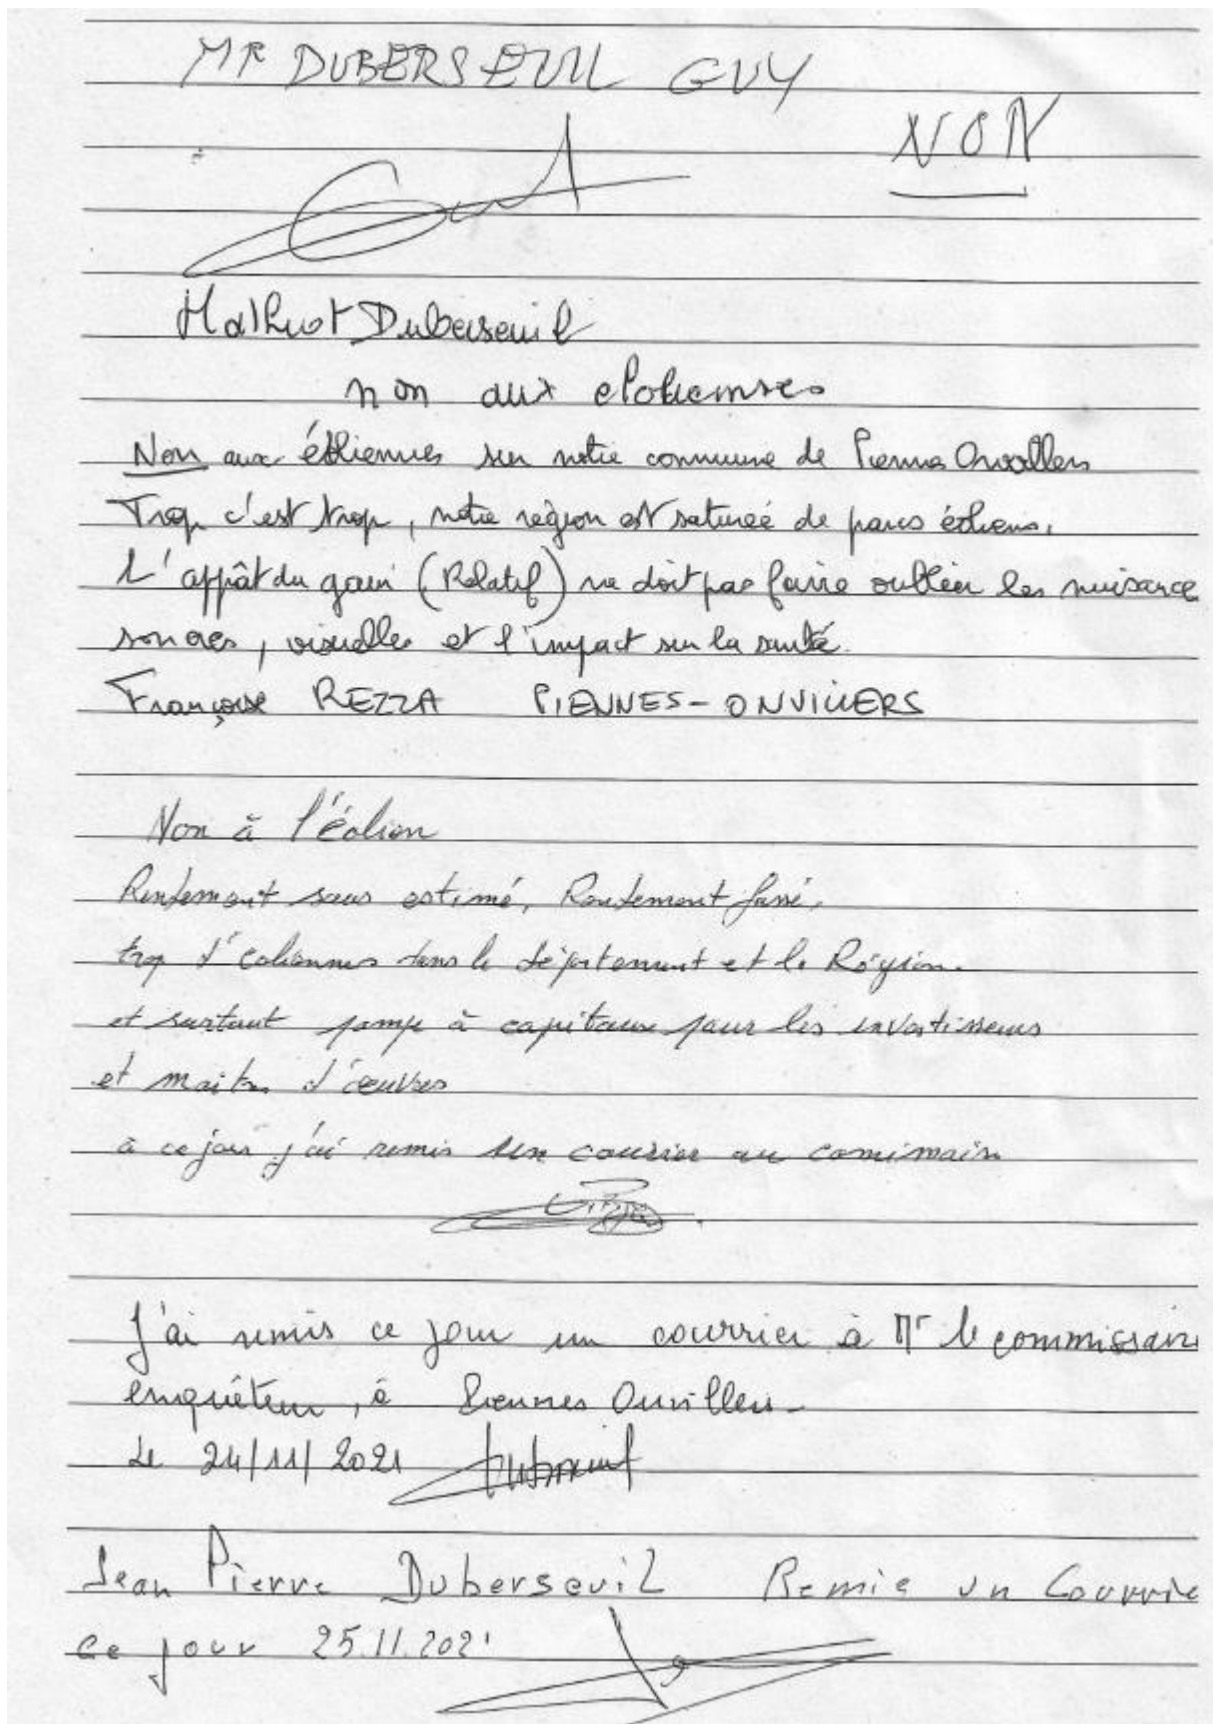 MR DUBERSEUIL GUY
NON
Mathiot Duberseuil
non aux eoliennes
Non aux éoliennes sur notre commune de Piennes Onvillers
Trop c'est trop, notre région est saturée de parcs éoliens.
L'appât du gain (Relatif) ne doit pas faire oublier les nuisance
sonores, visuelles et l'impact sur la santé.
Françoise REZZA PIENNES-ONVILLERS
Non à l'éolien
Rendement sous estimé, Rendement
trop d'éoliennes dans le département et la Région.
et surtout pompe à capitaux pour les investisseurs
et maitres d'œuvres
à ce jour j'ai remis un courrier au
J'ai remis ce jour un courrier à Mr le commissaire
enquêteur, à Piennes Onvillers.
Le 24/11/2021
Jean Pierre Duberseuil Remis un Courrie
ce jour 25.11.2021